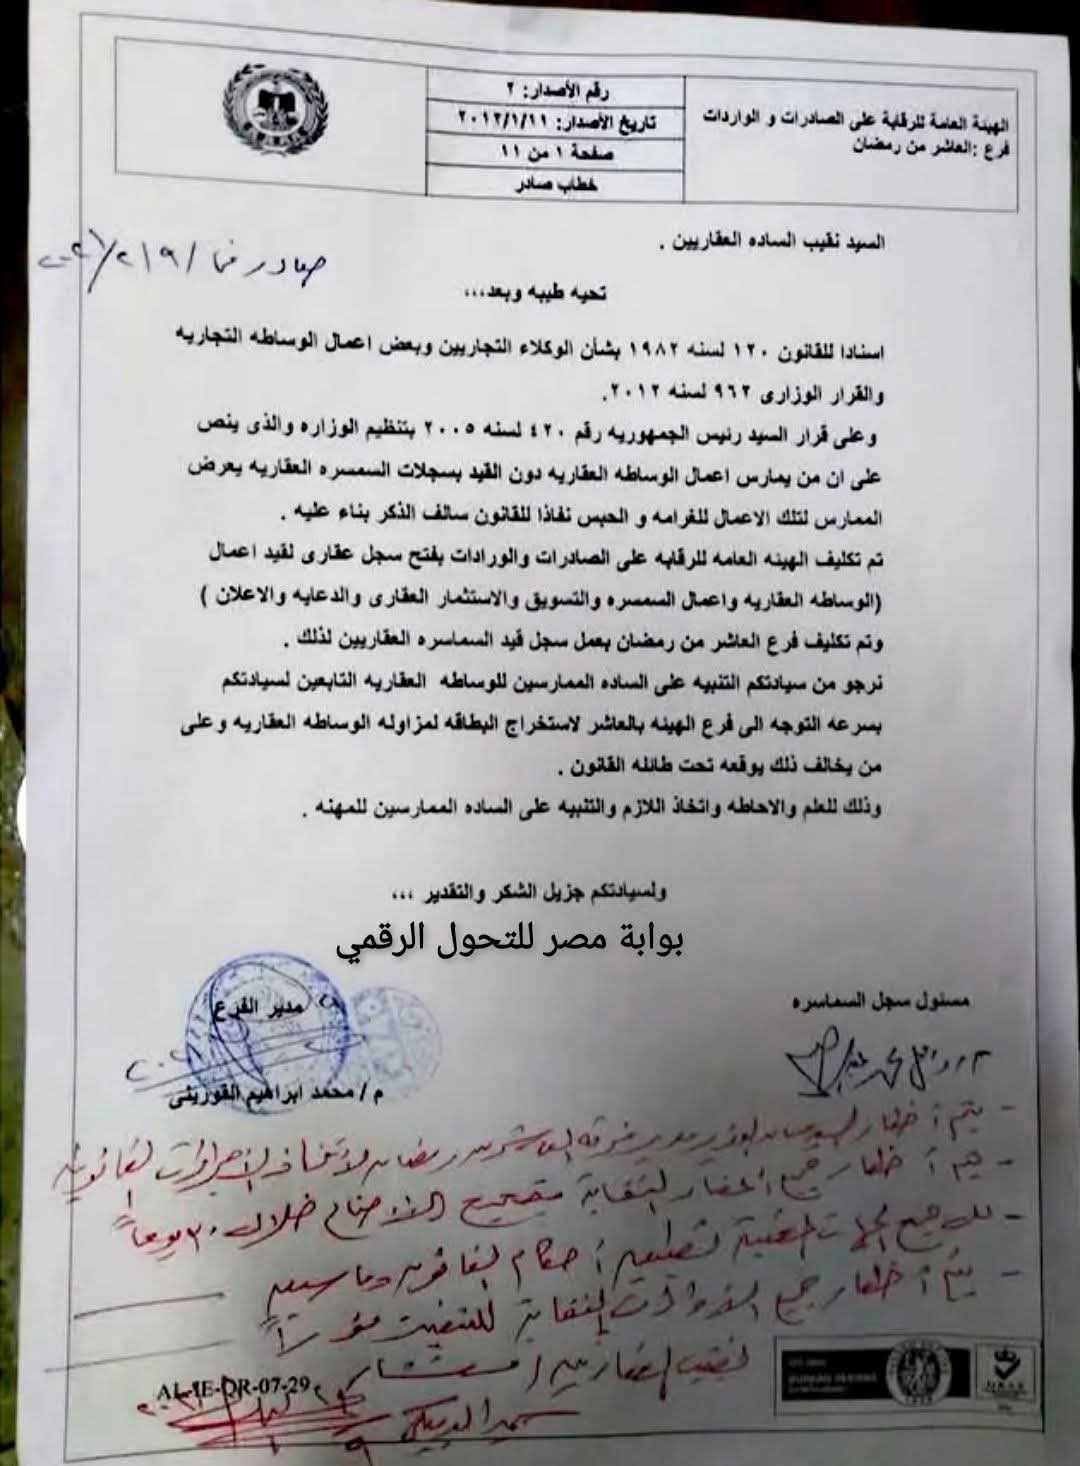 الهيئة العامة للرقابة على الصادرات و الواردات
فرع :العاشر من رمضان
رقم الأصدار: ٢
تاريخ الأصدار: ٢٠١٢/١/١١
صفحة ١ من ١١
خطاب صادر
السيد نقيب الساده العقاريين .
صادر رقم / ٢١٩ / ٢٠٢١
تحيه طيبه وبعد...
اسنادا للقانون ١٢٠ لسنه ١٩٨٢ بشأن الوكلاء التجاريين وبعض اعمال الوساطه التجاريه
والقرار الوزارى ٩٦٢ لسنه ٢٠١٢.
وعلى قرار السيد رئيس الجمهوريه رقم ٤٢٠ لسنه ٢٠٠٥ بتنظيم الوزاره والذى ينص
على ان من يمارس اعمال الوساطه العقاريه دون القيد بسجلات السمسره العقاريه يعرض
الممارس لتلك الاعمال للغرامه و الحبس نفاذا للقانون سالف الذكر بناء عليه .
تم تكليف الهيئه العامه للرقابه على الصادرات والورادات بفتح سجل عقارى لقيد اعمال
(الوساطه العقاريه واعمال السمسره والتسويق والاستثمار العقارى والدعايه والاعلان )
وتم تكليف فرع العاشر من رمضان بعمل سجل قيد السماسره العقاريين لذلك .
نرجو من سيادتكم التنبيه على الساده الممارسين للوساطه العقاريه التابعين لسيادتكم
بسرعه التوجه الى فرع الهيئه بالعاشر لاستخراج البطاقه لمزاوله الوساطه العقاريه وعلى
من يخالف ذلك يوقعه تحت طائله القانون .
وذلك للعلم والاحاطه واتخاذ اللازم والتنبيه على الساده الممارسين للمهنه .
ولسيادتكم جزيل الشكر والتقدير ...
بوابة مصر للتحول الرقمي
مسئول سجل السماسره
مدير الفرع
م / محمد ابراهيم القوريثى
- يتم أخطار
- يتم أخطار جميع أعضاء النقابة بتصحيح الأوضاع خلال ٣٠ يوماً
أحكام القانون
- يتم أخطار جميع
نقيب العقاريين / مستشار
AL-IE-OR-07-29
BUREAU VERITAS
UKAS